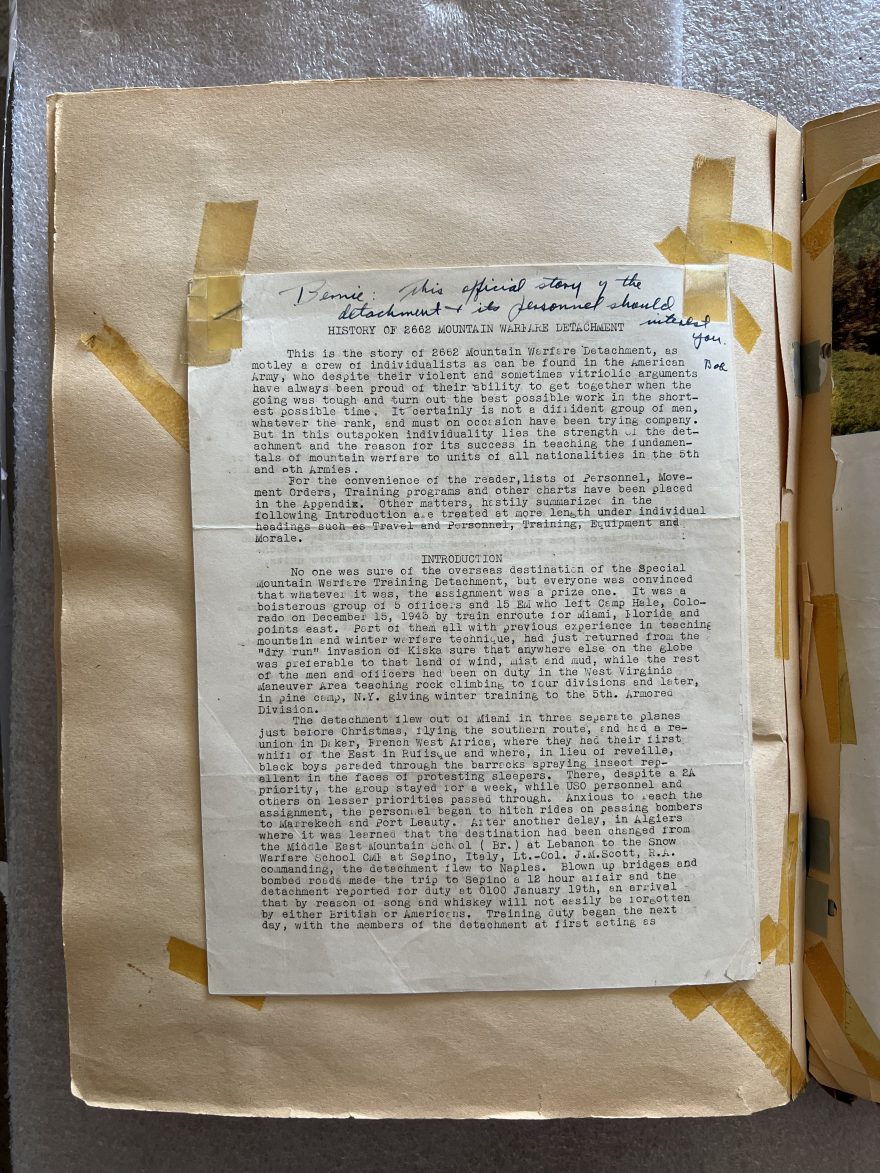 Bernie: This official story of the
detachment & its personnel should
interest
you.
Bob
HISTORY OF 2662 MOUNTAIN WARFARE DETACHMENT
This is the story of 2662 Mountain Warfare Detachment, as
motley a crew of individualists as can be found in the American
Army, who despite their violent and sometimes vitriolic arguments
have always been proud of their ability to get together when the
going was tough and turn out the best possible work in the short-
est possible time. It certainly is not a diffident group of men,
whatever the rank, and must on occasion have been trying company.
But in this outspoken individuality lies the strength of the det-
achment and the reason for its success in teaching the fundamen-
tals of mountain warfare to units of all nationalities in the 5th
and 8th Armies.
For the convenience of the reader,lists of Personnel, Move-
ment Orders, Training programs and other charts have been placed
in the Appendix. Other matters, hastily summarized in the
following Introduction are treated at more length under individual
headings such as Travel and Personnel, Training, Equipment and
Morale.
INTRODUCTION
No one was sure of the overseas destination of the Special
Mountain Warfare Training Detachment, but everyone was convinced
that whatever it was, the assignment was a prize one. It was a
boisterous group of 5 officers and 15 EM who left Camp Hale, Colo-
rado on December 15, 1943 by train enroute for Miami, Florida and
points east. Part of them all with previous experience in teaching
mountain and winter warfare technique, had just returned from the
"dry run" invasion of Kiska sure that anywhere else on the globe
was preferable to that land of wind, mist and mud, while the rest
of the men and officers had been on duty in the West Virginia
Maneuver Area teaching rock climbing to four divisions and later,
in pine camp, N.Y. giving winter training to the 5th. Armored
Division.
The detachment flew out of Miami in three separate planes
just before Christmas, flying the southern route, and had a re-
union in Daker, French West Africa, where they had their first
whiff of the East in Rufisque and where, in lieu of reveille,
black boys paraded through the barracks spraying insect rep-
ellent in the faces of protesting sleepers. There, despite a 2A
priority, the group stayed for a week, while USO personnel and
others on lesser priorities passed through. Anxious to reach the
assignment, the personnel began to hitch rides on passing bombers
to Marrekech and Port Leauty. After another delay, in Algiers
where it was learned that the destination had been changed from
the Middle East Mountain School ( Br.) at Lebanon to the Snow
Warfare School CMF at Sepino, Italy, Lt.-Col. J.M.Scott, R.A.
commanding, the detachment flew to Naples. Blown up bridges and
bombed roads made the trip to Sepino a 12 hour affair and the
detachment reported for duty at 0100 January 19th, an arrival
that by reason of song and whiskey will not easily be forgotten
by either British or Americans. Training duty began the next
day, with the members of the detachment at first acting as